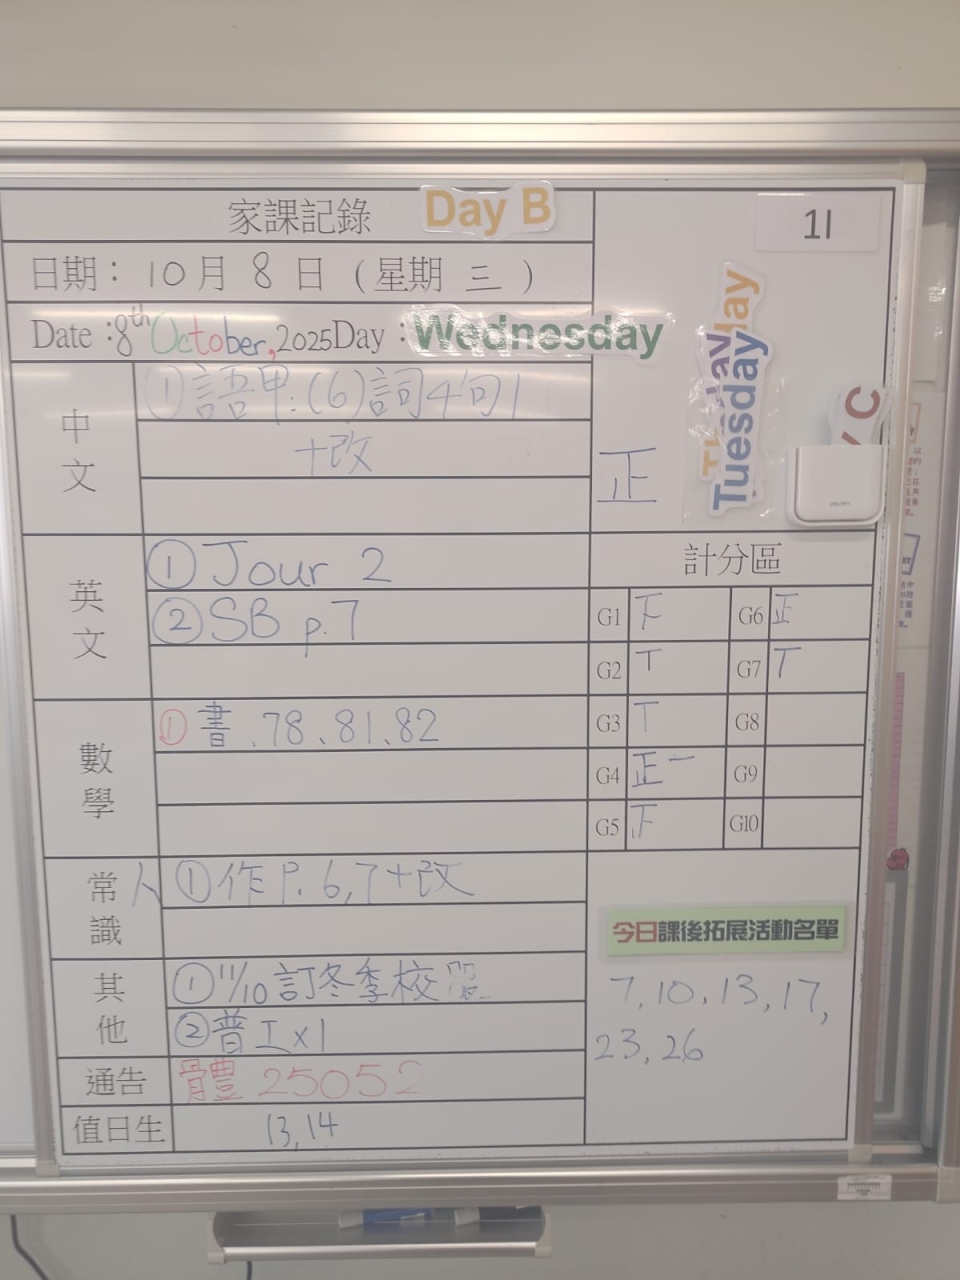 家課記錄 Day B
1I
日期：10月8日（星期三）
Date :8th October, 2025 Day : Wednesday
Tuesday
C
中文
①語甲:(6)詞4句1
+改
正
英文
①Jour 2
②SB p.7
計分區
G1 下 G6 正
G2 T G7 T
G3 T G8
G4 正一 G9
G5 下 G10
數學
①書.78、81、82
常識 人
①作P.6,7+改
今日課後拓展活動名單
7,10,13,17,
23,26
其他
①11/10訂冬季校服
②普工x1
通告 體 25052
值日生 13,14